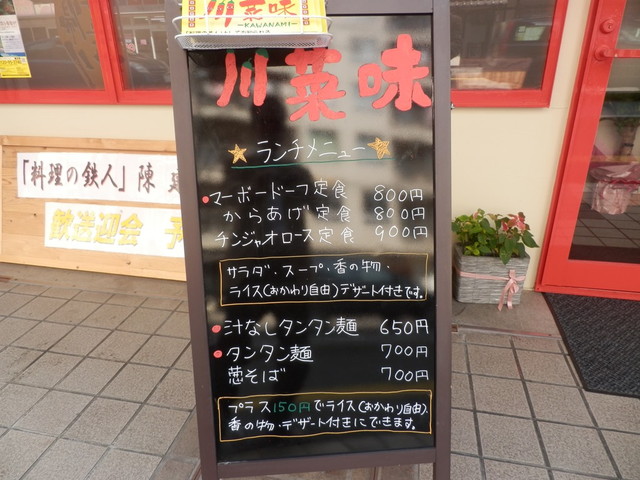 川菜味
-KAWANAMI-
川菜味
ランチメニュー
マーボードーフ定食 800円
からあげ定食 800円
チンジャオロース定食 900円
サラダ・スープ・香の物・
ライス(おかわり自由)デザート付きです。
汁なしタンタン麺 650円
タンタン麺 700円
葱そば 700円
プラス150円でライス(おかわり自由)、
香の物・デザート付きにできます。
「料理の鉄人」陳 建
歓送迎会 予